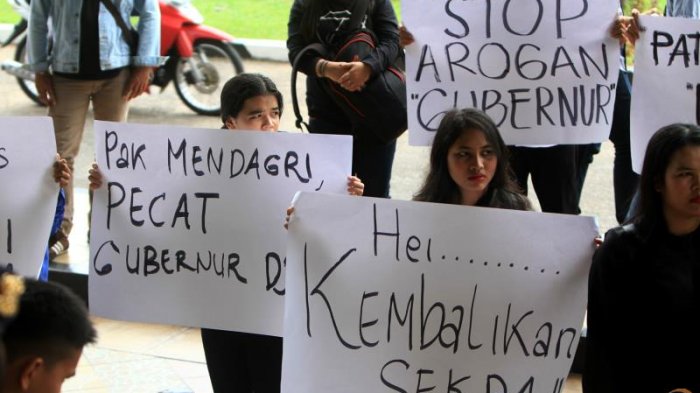 STOP
AROGAN
"GUBERNUR"
PAK MENDAGRI,
PECAT
GUBERNUR
Hei..........
KEMBALIKAN
SEKDA"